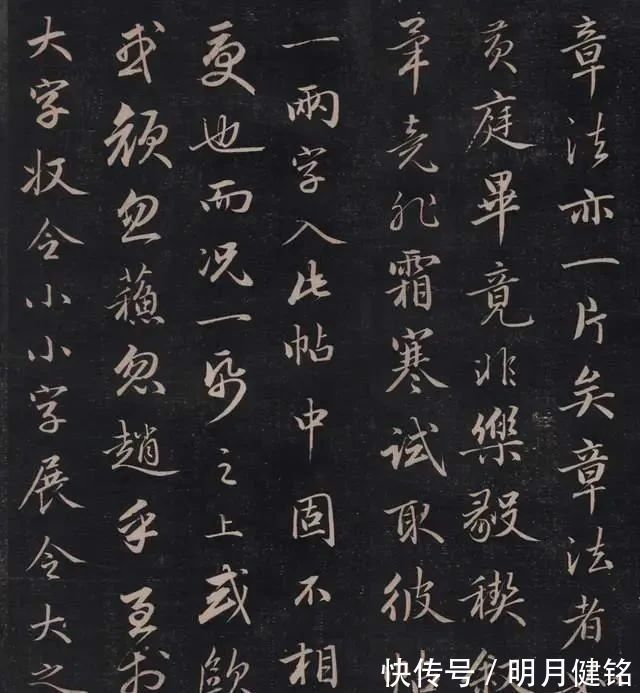 章法亦一片矣章法者
黄庭畢竟非樂毅稧
畢竟非霜寒試取彼帖
一兩字入此帖中固不相
也而况一帋之上或歐
或顔忽蘇忽趙乎至於
大字收令小小字展令大之
快传号 / 明月健铭